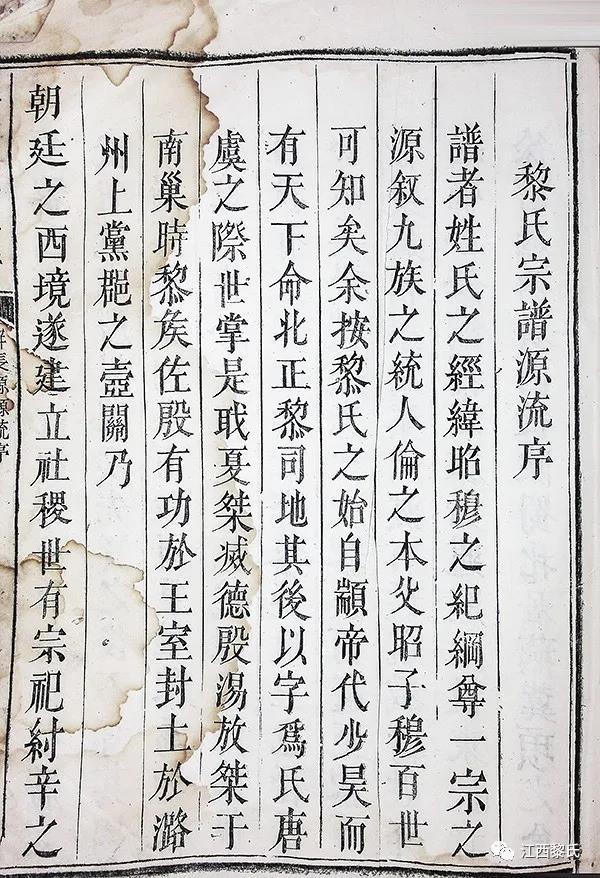 黎氏宗譜源流序
譜者姓氏之經緯昭穆之紀綱尊一宗之
源叙九族之統人倫之本父昭子穆百世
可知矣余按黎氏之始自顓帝代少昊而
有天下命北正黎司地其後以字爲氏唐
虞之際世掌是戢夏桀滅德殷湯放桀于
南巢時黎矦佐殷有功於王室封土於潞
州上黨郡之壺關乃
朝廷之西境遂建立社稷世有宗祀紂辛之
源流序
江西黎氏